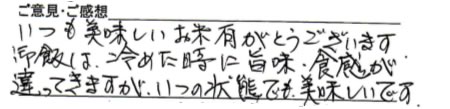 ご意見・ご感想
いつも美味しいお米有がとうございます
御飯は、冷めた時に旨味・食感が
違ってきますが、いつの状態でも美味しいです